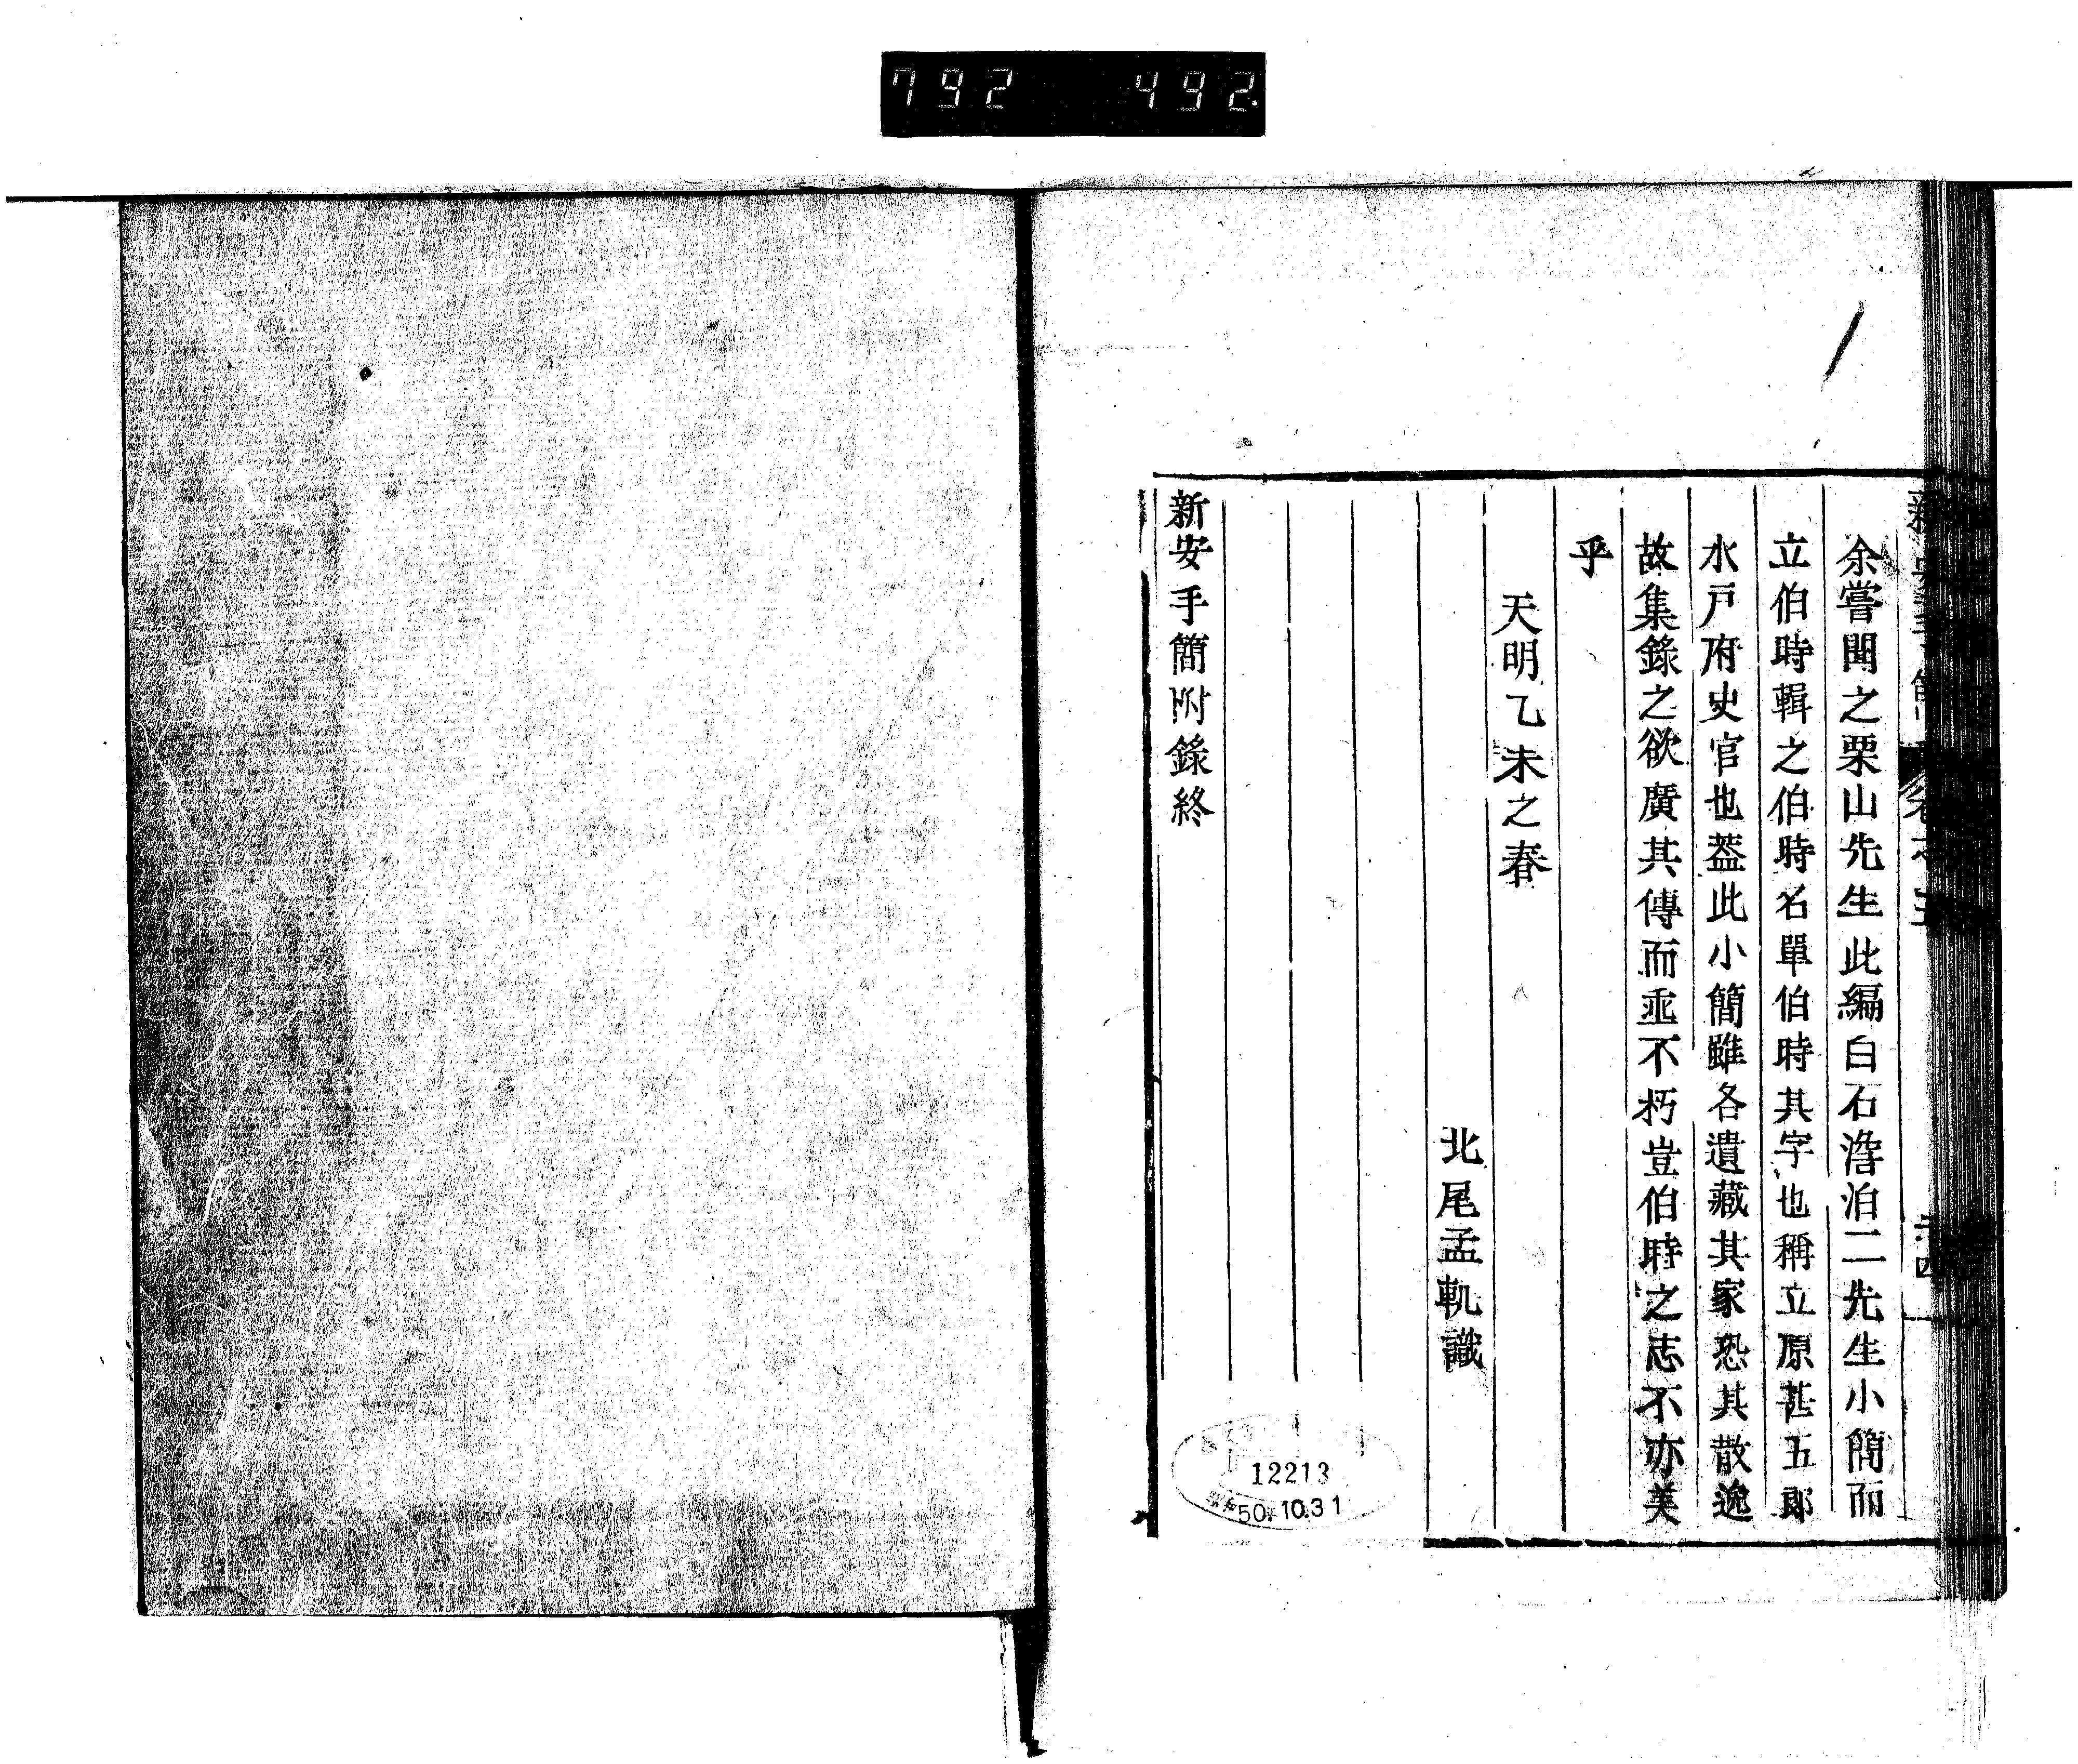 792 492
余嘗聞之栗山先生此編白石澹泊二先生小簡而
立伯時輯之伯時名單伯時其字也稱立原甚五郎
水戸府史官也蓋此小簡雖各遺藏其家恐其散逸
故集錄之欲廣其傳而垂不朽豈伯時之志不亦美
乎
天明乙未之春
北尾孟軌識
新安手簡附錄終
12213
昭和50.10.31